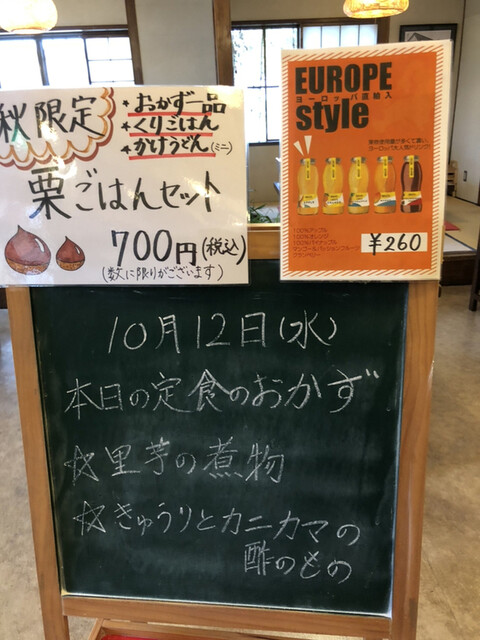 秋限定
★おかず一品
★くりごはん
★かけうどん(ミニ)
栗ごはんセット
700円(税込)
(数に限りがございます)
EUROPE
ヨーロッパ直輸入
style
100%アップル
100%オレンジ
100%パイナップル
¥260
10月12日(水)
本日の定食のおかず
☆里芋の煮物
☆きゅうりとカニカマの
酢のもの